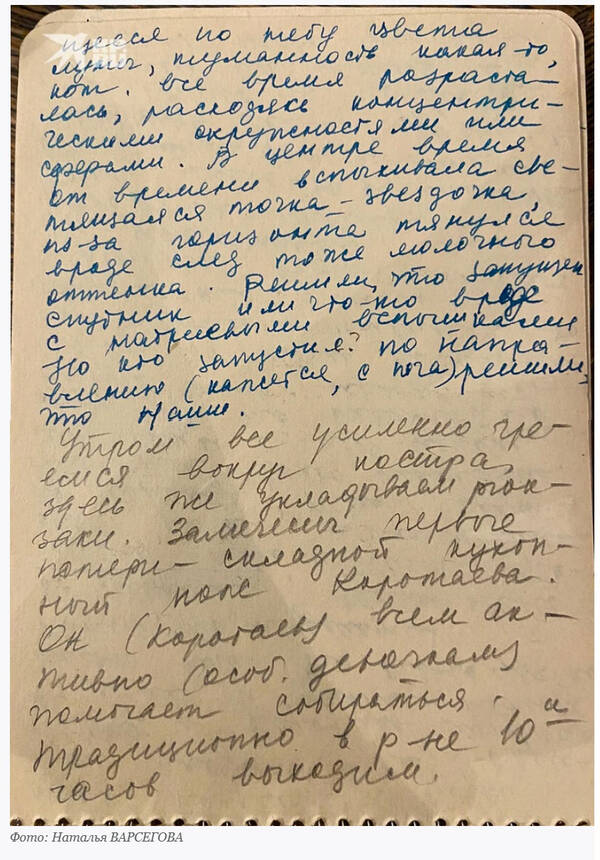 щееся по небу цвета
луны, туманность какая-то,
кот. все время разраста-
лась, расходясь концентри-
ческими окружностями или
сферами. В центре время
от времени вспыхивала све-
тящаяся точка-звездочка,
из-за горизонта тянулся
вроде след тоже молочного
оттенка. Решили, что запущен
спутник или что-то вроде
с натриевыми вспышками
Но кто запустил? по напра-
влению (кажется, с юга) решили,
что наши.
Утром все усиленно гре-
емся вокруг костра,
здесь же укладываем рюк-
заки. Замечены первые
потери - складной кухон-
ный нож Коротаева.
Он (Коротаев) всем ак-
тивно (особ. девочкам)
помогает собираться.
Традиционно в р-не 10и
часов выходим.
Фото: Наталья ВАРСЕГОВА